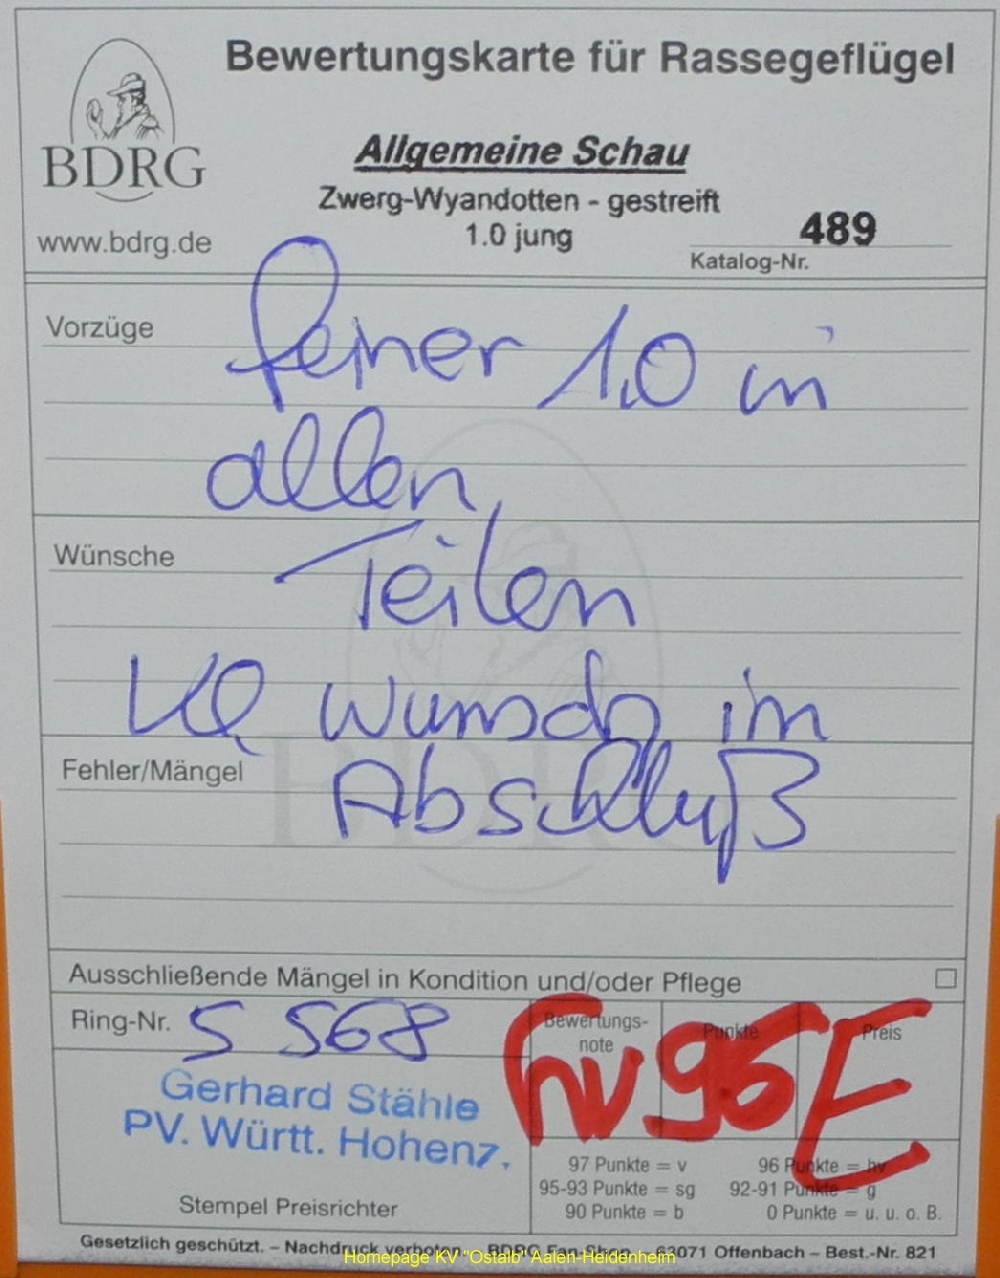 Bewertungskarte für Rassegeflügel
BDRG
www.bdrg.de
Allgemeine Schau
Zwerg-Wyandotten - gestreift
1.0 jung
489
Katalog-Nr.
Vorzüge
feiner 1,0 in
allen
Wünsche
Teilen
Wunsch im
Fehler/Mängel
Abschluß
Ausschließende Mängel in Kondition und/oder Pflege
Ring-Nr. S 568
Bewertungs-
note
Punkte
Preis
hv 96 E
Gerhard Stähle
PV. Württ. Hohenz.
Stempel Preisrichter
97 Punkte = v
96 Punkte = hv
95-93 Punkte = sg
92-91 Punkte = g
90 Punkte = b
0 Punkte = u. u. o. B.
Gesetzlich geschützt. – Nachdruck verboten – BDRG 63071 Offenbach – Best.-Nr. 821
Homepage KV "Ostalb" Aalen-Heidenheim